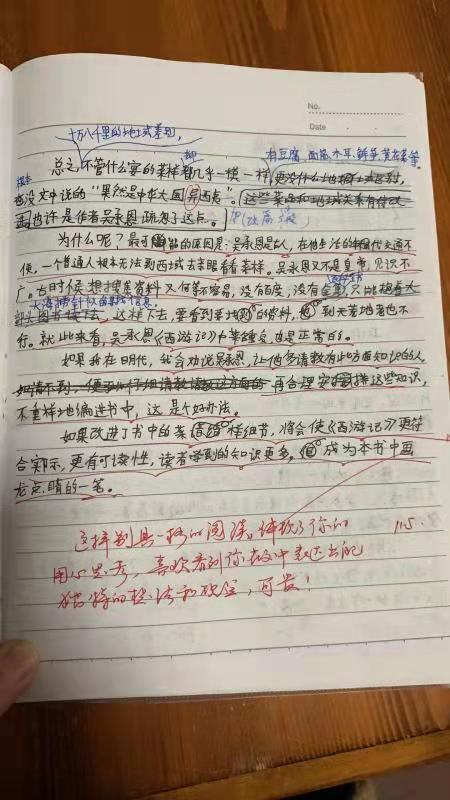 No.
Date
十万八千里的地域差别,
却
有豆腐、面筋、木耳、鲜笋、黄花菜等。
总之,不管什么宴的菜样都几乎一模一样,
根本
也没文中说的“果然是中华大国,异西点”。
也许是作者吴承恩疏忽了这点。
为什么呢?最可能的原因是:吴承恩是古人,在他生活的明代交通不
便,一个普通人根本无法到西域去亲眼看看菜样。吴承恩又不是皇帝,见识不
广。古时候想搜集资料又何等不容易,没有百度,没有
大海捞针似的
这样下去,要看到某地的资料,到天荒地老也不
行。就此来看,吴承恩《西游记》中菜重复也是正常的。
如果我在明代,我会劝说吴承恩,让他多请教有此方面知识的人,
再合理安排这些知识,
不重样地编进书中,这是个好办法。
如果改进了书中的菜样细节,将会使《西游记》更符
合实际,更有可读性,读者学到的知识更多,成为本书中画
龙点睛的一笔。
这样别具一格的阅读,体现了你的
用心思考,喜欢看到你在文中表达出的
独特的想法和观念,可贵!
11.5.